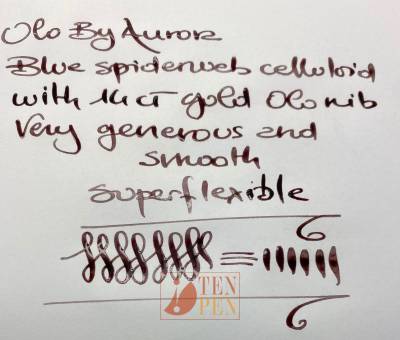 Olo By Aurora
Blue spiderweb celluloid
with 14 ct gold Olo nib
Very generous and
smooth
superflexible
TEN
PEN